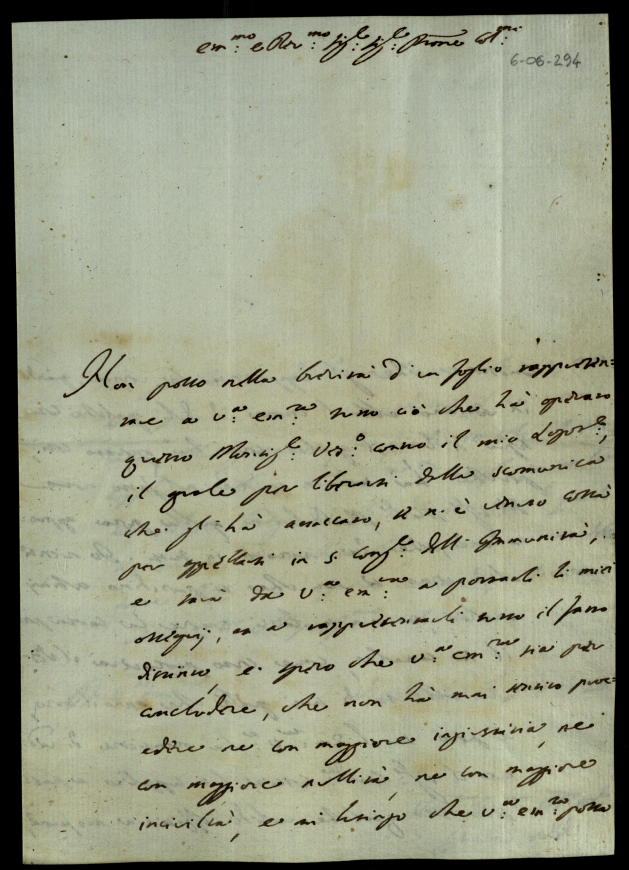 Em.mo e Rev.mo Sig.e Sig.e Prone Col.mo
6-06-294
Non posso nella brevità d'un foglio rappresen=
tare a V.a Em.za tutto ciò che hà operato
questo Monsig.e Ves.o contro il mio
il quale per liberarsi dalla scomunica
che gl'hà attaccato, se n'è venuto costà
per appellarsi in S. Cong.e dell'Immunità,
e sarà da V.a Em.za a portarli li miei
ossequij, et a rappresentarli tutto il fatto
distinto, e spero che V.a Em.za sia per
concludere, che non hà mai sentito proce=
dere ne con maggiore ingiustizia, ne
con maggiore nullità, ne con maggiore
inciviltà, e mi lusingo che V.a Em.za possa